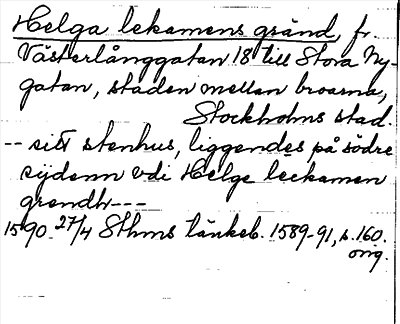 Helga lekamens gränd, fr.
Västerlånggatan 18 till Stora Ny-
gatan, staden mellan broarna,
Stockholms stad.
-- sitt stenhus, liggendes på södre
sydenn vdi Helge leckamen
grendh---
1590 27/4 Sthms tänkeb. 1589-91, s. 160.
orig.